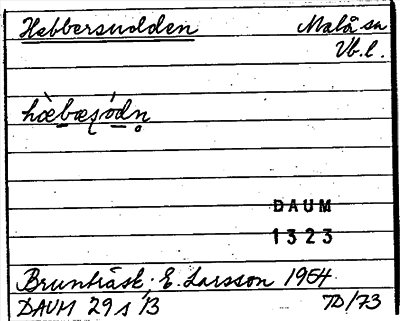 Hebbersudden Malå sn
Vb. l.
hæ̀bæʂódn̥
DAUM
1323
Brunträsk; E. Larsson 1954
DAUM 29 s 13 TD/73